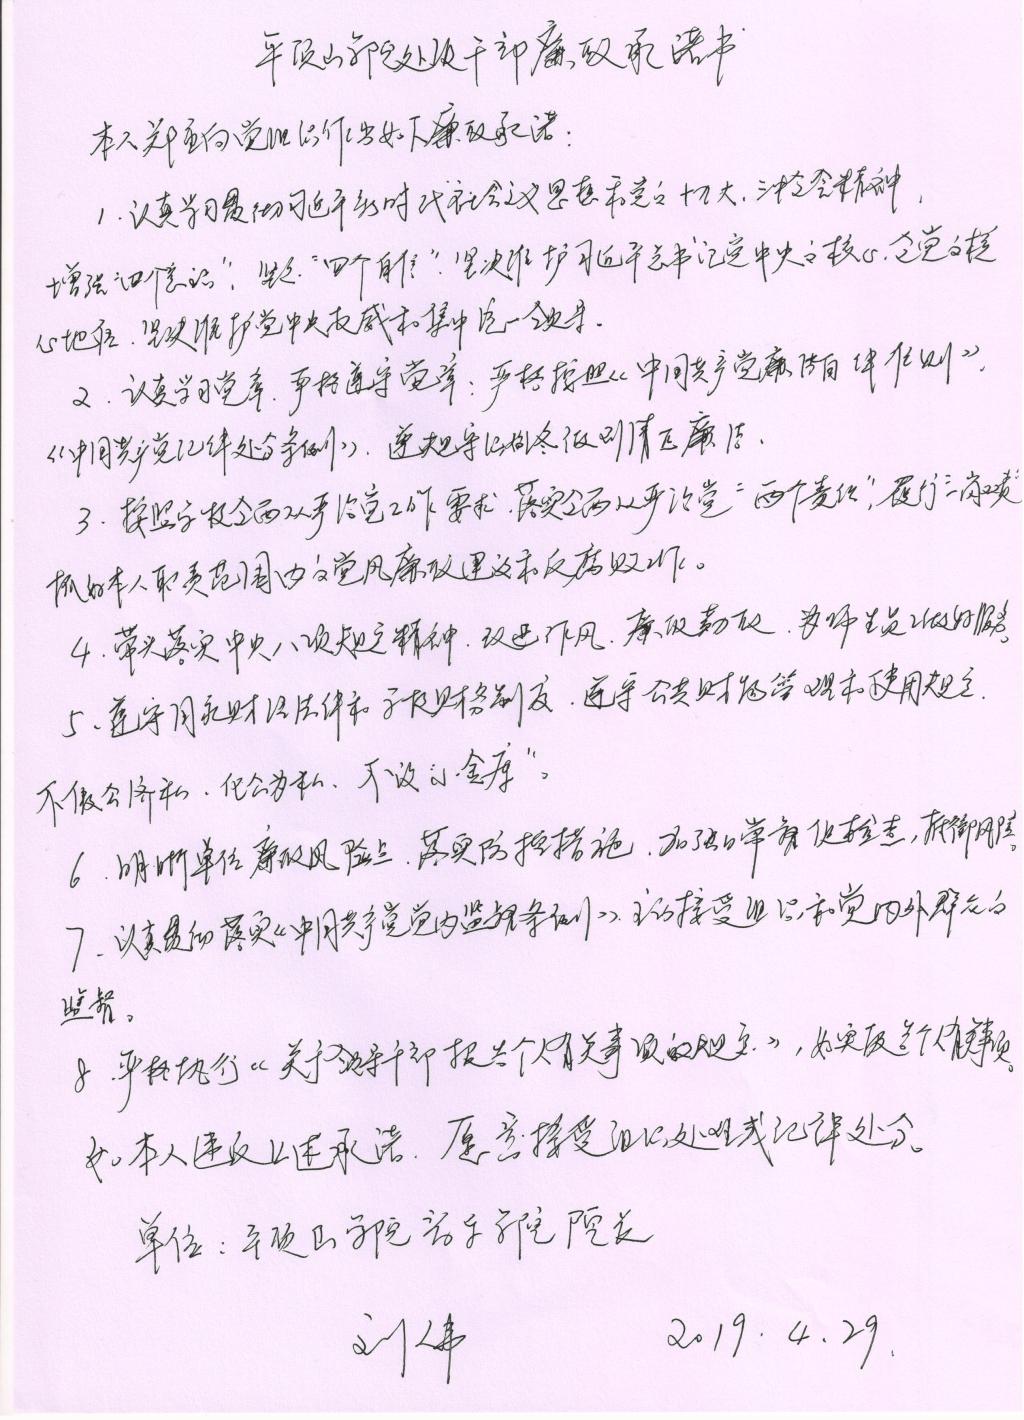 平顶山学院处级干部廉政承诺书
本人郑重向党组织作出如下廉政承诺：
1.认真学习贯彻习近平新时代社会主义思想和党的十九大、三中全会精神，
增强"四个意识"，坚定"四个自信"，坚决维护习近平总书记党中央的核心、全党的核
心地位，坚决维护党中央权威和集中统一领导。
2.认真学习党章，严格遵守党章；严格按照《中国共产党廉洁自律准则》、
《中国共产党纪律处分条例》，遵规守纪始终做到清正廉洁。
3.按照学校全面从严治党工作要求，落实全面从严治党"两个责任"，履行一岗双责
抓好本人职责范围内的党风廉政建设和反腐败工作。
4.带头落实中央八项规定精神，改进作风，廉政勤政，为师生员工做好服务。
5、遵守国家财经法律和学校财务制度，遵守公共财物管理和使用规定，
不假公济私、化公为私、不设"小金库"。
6.明晰单位廉政风险点，落实防控措施，加强日常督促检查，抵御风险。
7.认真贯彻落实《中国共产党党内监督条例》，主动接受组织和党内外群众的
监督。
8.严格执行《关于领导干部报告个人有关事项的规定》，如实报告个人有关事项。
如本人违反上述承诺，愿意接受组织处理或纪律处分。
单位：平顶山学院音乐学院院长
刘伟 2019.4.29.